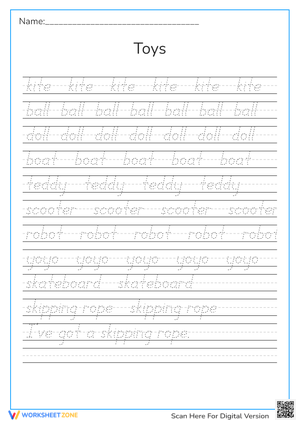 Name:
Toys
kite kite kite kite kite kite
ball ball ball ball ball ball ball
doll doll doll doll doll doll doll
boat boat boat boat boat
teddy teddy teddy teddy
scooter scooter scooter scooter
robot robot robot robot robot
yoyo yoyo yoyo yoyo yoyo
skateboard skateboard
skipping rope skipping rope
I've got a skipping rope.
WORKSHEETZONE
Scan Here For Digital Version